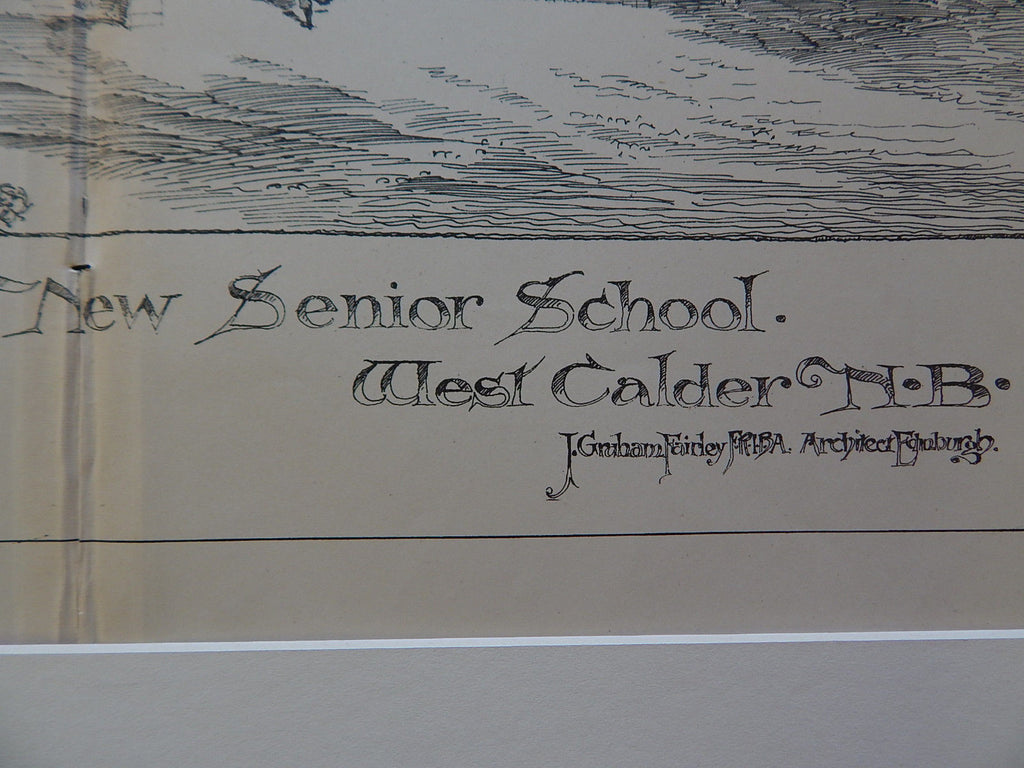 New Senior School.
West Calder N.B.
J. Graham Fairley FRIBA. Architect Edinburgh.